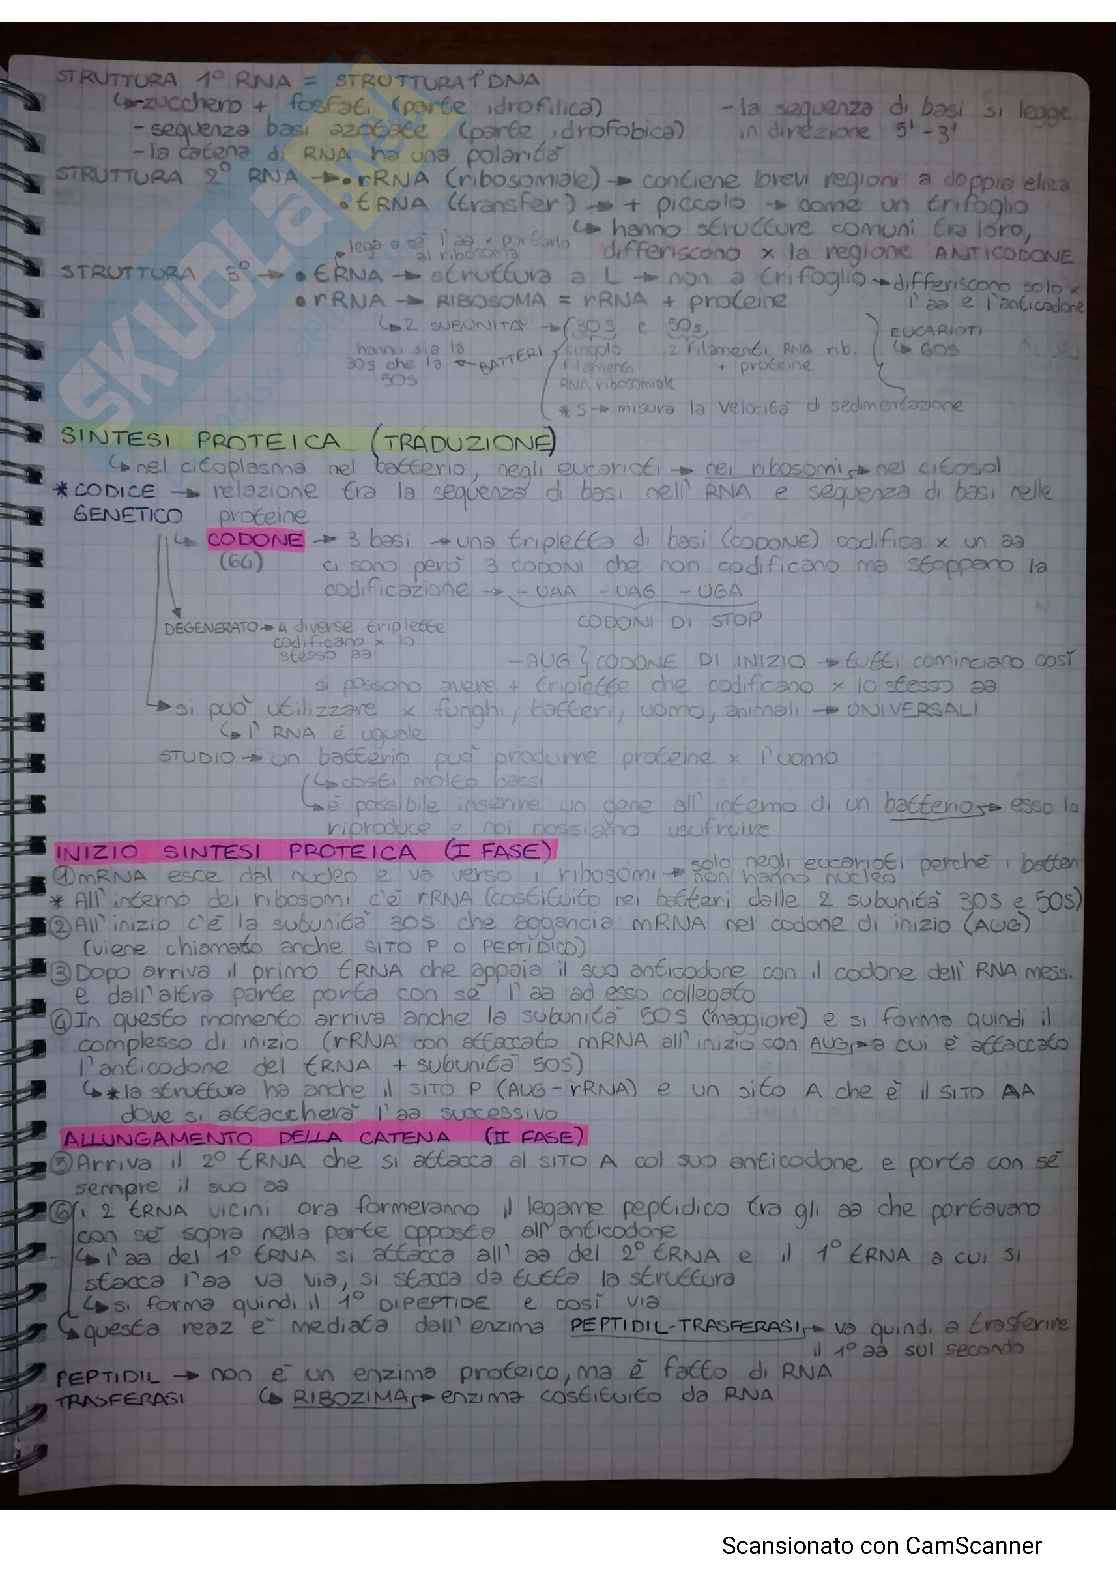 STRUTTURA 1° RNA = STRUTTURA 1° DNA
↳ zucchero + fosfati (parte idrofilica) - la sequenza di basi si legge
- sequenza basi azotate (parte idrofobica) in direzione 5' - 3'
- la catena di RNA ha una polarità
STRUTTURA 2° RNA → • rRNA (ribosomiale) → contiene brevi regioni a doppia elica
• tRNA (transfer) → + piccolo → come un trifoglio
↳ hanno strutture comuni tra loro,
lega a sé l'aa x portarlo al ribosoma
differiscono x la regione ANTICODONE
STRUTTURA 3° → • tRNA → struttura a L → non a trifoglio → differiscono solo x
• rRNA → RIBOSOMA = rRNA + proteine l'aa e l'anticodone
↳ 2 SUBUNITÀ → (30S e 50S, EUCARIOTI
hanno sia la BATTERI singolo 2 filamenti RNA rib. ↳ 60S
30S che la filamento + proteine
50S RNA ribosomiale
* S → misura la velocità di sedimentazione
SINTESI PROTEICA (TRADUZIONE)
↳ nel citoplasma nel batterio, negli eucarioti → nei ribosomi → nel citosol
* CODICE → relazione tra la sequenza di basi nell' RNA e sequenza di basi nelle
GENETICO proteine
↳ CODONE → 3 basi → una tripletta di basi (CODONE) codifica x un aa
(64) ci sono però 3 CODONI che non codificano ma stoppano la
codificazione → - UAA - UAG - UGA
DEGENERATO → a diverse triplette CODONI DI STOP
codificano x lo
stesso aa
- AUG } CODONE DI INIZIO → tutti cominciano così
si possono avere + triplette che codificano x lo stesso aa
↳ si può utilizzare x funghi, batteri, uomo, animali → UNIVERSALI
↳ l' RNA è uguale
STUDIO → un batterio può produrre proteine x l'uomo
↳ costi molto bassi
↳ è possibile inserire un gene all'interno di un batterio → esso la
riproduce e noi possiamo usufruire
INIZIO SINTESI PROTEICA (I FASE)
① mRNA esce dal nucleo e va verso i ribosomi → solo negli eucarioti perché i batteri
non hanno nucleo
* All'interno dei ribosomi c'è rRNA (costituito nei batteri dalle 2 subunità 30S e 50S)
② All'inizio c'è la subunità 30S che aggancia mRNA nel codone di inizio (AUG)
(viene chiamato anche SITO P O PEPTIDICO)
③ Dopo arriva il primo tRNA che appaia il suo anticodone con il codone dell' RNA mess.
e dall'altra parte porta con sé l'aa ad esso collegato
④ In questo momento arriva anche la subunità 50S (maggiore) e si forma quindi il
complesso di inizio (rRNA con attaccato mRNA all'inizio con AUG, a cui è attaccato
l'anticodone del tRNA + subunità 50S)
↳ * la struttura ha anche il SITO P (AUG-rRNA) e un sito A che è il SITO AA
dove si attaccherà l'aa successivo
ALLUNGAMENTO DELLA CATENA (II FASE)
⑤ Arriva il 2° tRNA che si attacca al SITO A col suo anticodone e porta con sé
sempre il suo aa
⑥ i 2 tRNA vicini ora formeranno il legame peptidico tra gli aa che portavano
con sé sopra nella parte opposta all'anticodone
↳ l'aa del 1° tRNA si attacca all' aa del 2° tRNA e il 1° tRNA a cui si
stacca l'aa va via, si stacca da tutta la struttura
↳ si forma quindi il 1° DIPEPTIDE e così via
↳ questa reaz è mediata dall'enzima PEPTIDIL-TRASFERASI, → va quindi a trasferire
il 1° aa sul secondo
PEPTIDIL → non è un enzima proteico, ma è fatto di RNA
TRASFERASI ↳ RIBOZIMA, → enzima costituito da RNA
Scansionato con CamScanner